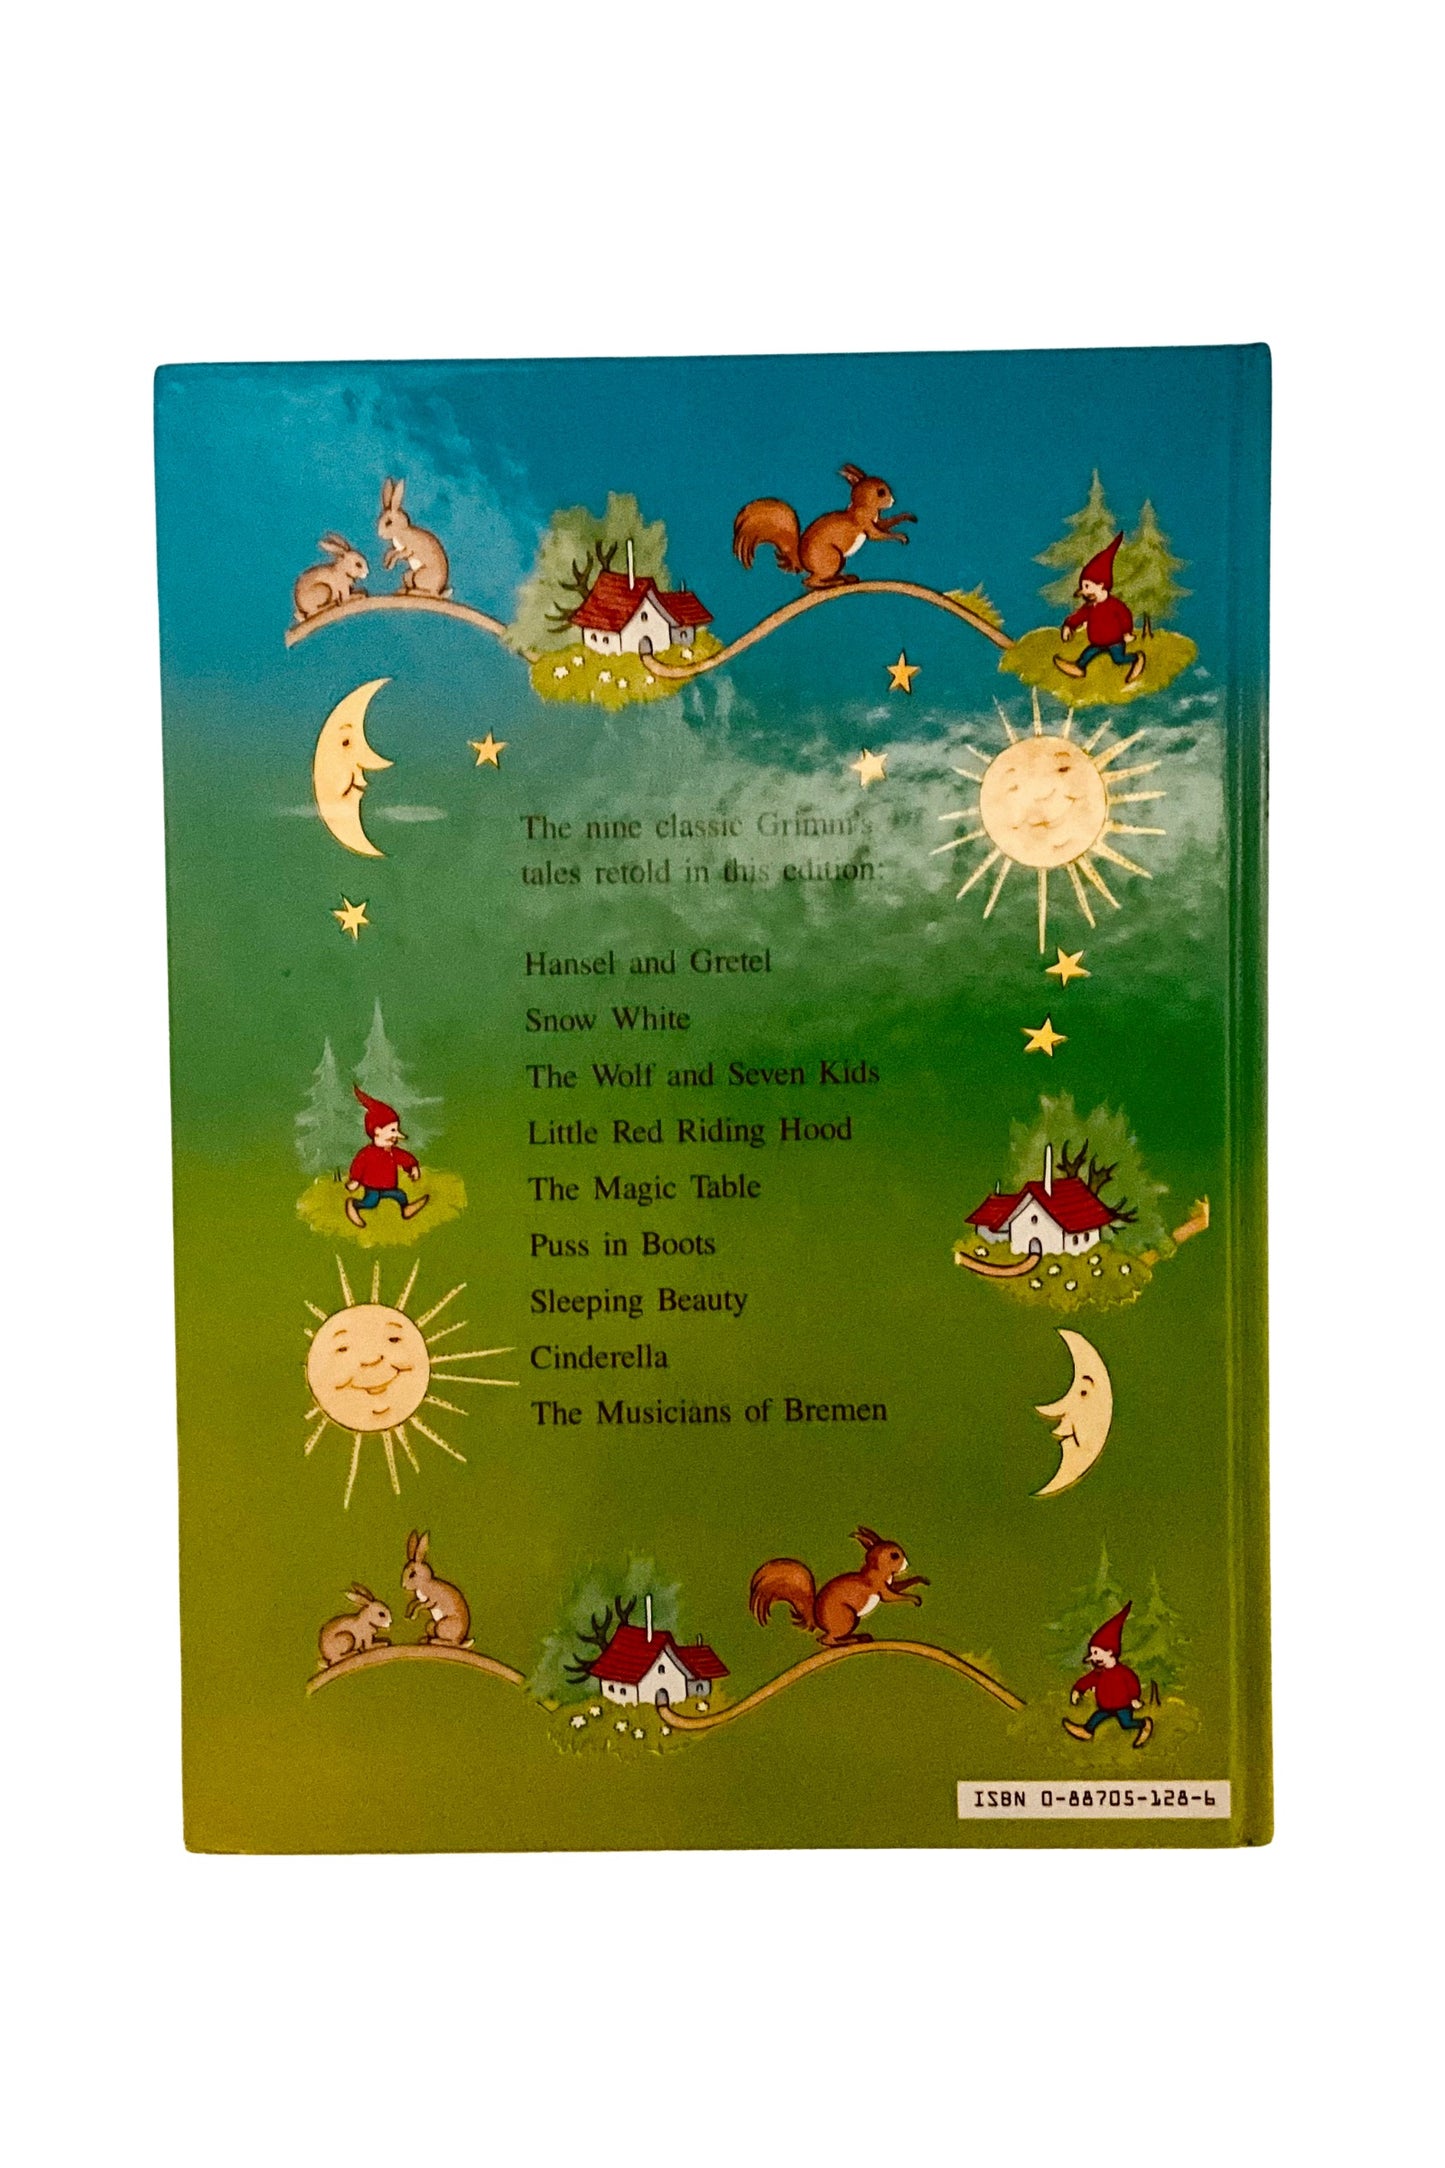 The nine classic Grimm's
tales retold in this edition:
Hansel and Gretel
Snow White
The Wolf and Seven Kids
Little Red Riding Hood
The Magic Table
Puss in Boots
Sleeping Beauty
Cinderella
The Musicians of Bremen
ISBN 0-88705-128-6